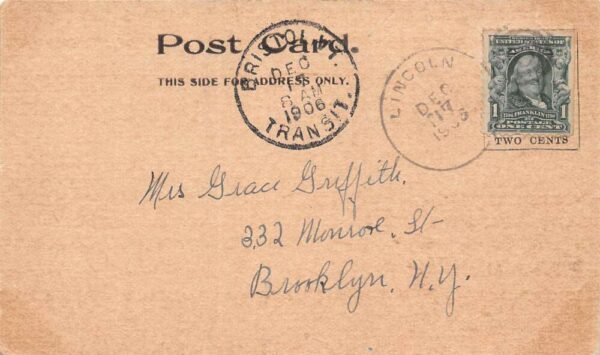 Post Card.
THIS SIDE FOR ADDRESS ONLY.
BRISTOL, VT.
DEC
8 AM
1906
TRANSIT.
LINCOLN
DEC
17
1906
1 FRANKLIN 1
POSTAGE
ONE CENT
TWO CENTS
Mrs Grace Griffith.
332 Monroe. St-
Brooklyn. N.Y.